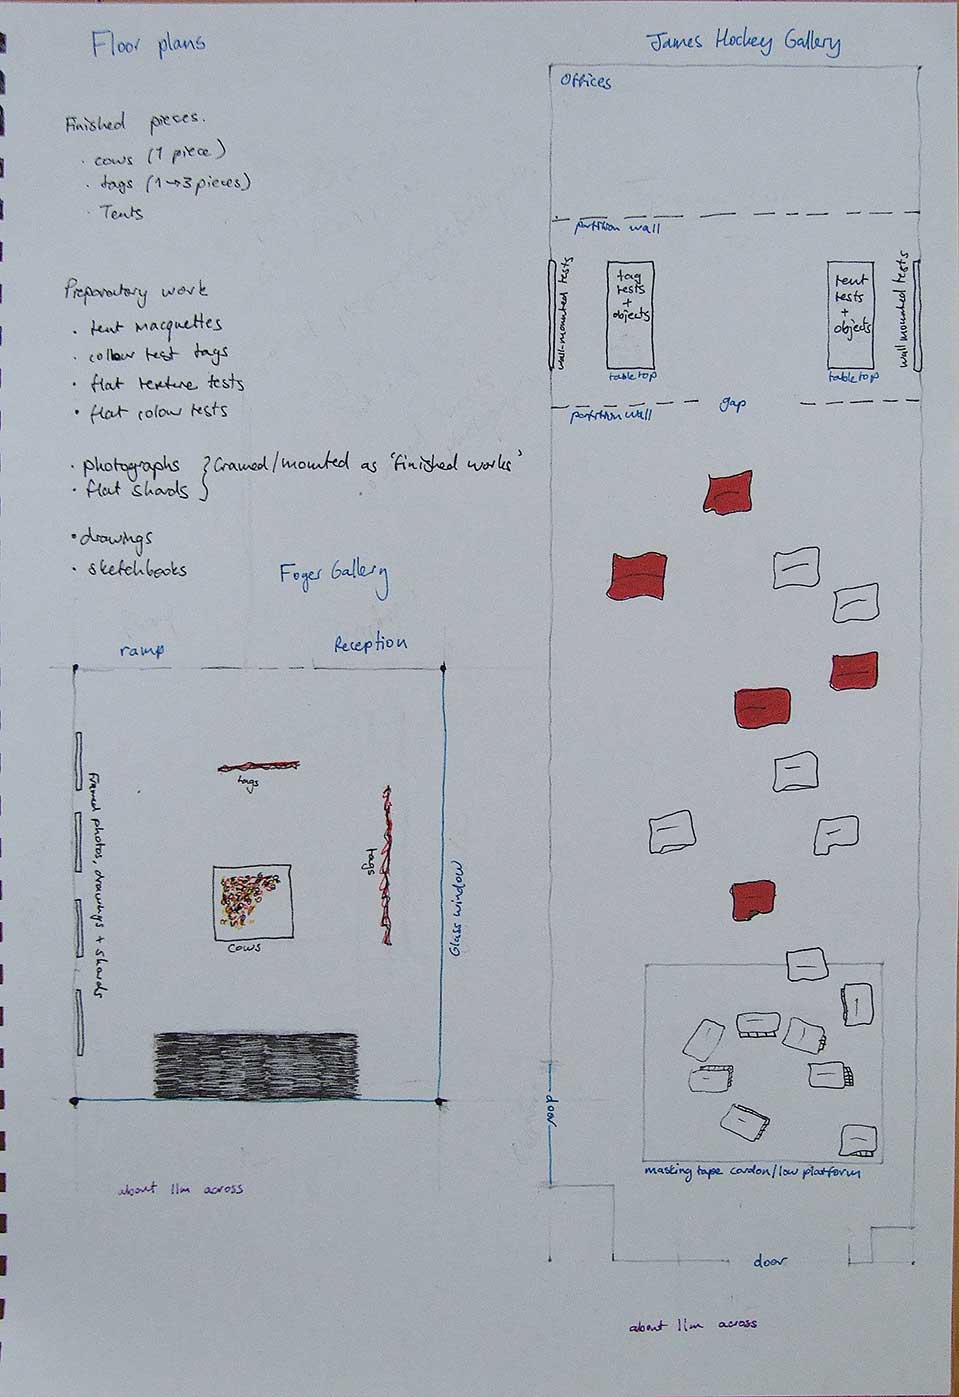 Floor plans
Finished pieces.
· cows (1 piece)
· tags (1→3 pieces)
· Tents
Preparatory work
· tent macquettes
· colour test tags
· flat texture tests
· flat colour tests
· photographs } framed/mounted as 'finished works'
· flat shards }
· drawings
· sketchbooks
Foyer Gallery
ramp
Reception
tags
tags
cows
framed photos, drawings + shards
Glass window
about 11m across
James Hockey Gallery
Offices
partition wall
wall-mounted tests
tag
tests
+
objects
tabletop
tent
tests
+
objects
tabletop
wall mounted tests
partition wall
gap
door
masking tape cordon/low platform
door
about 11m across